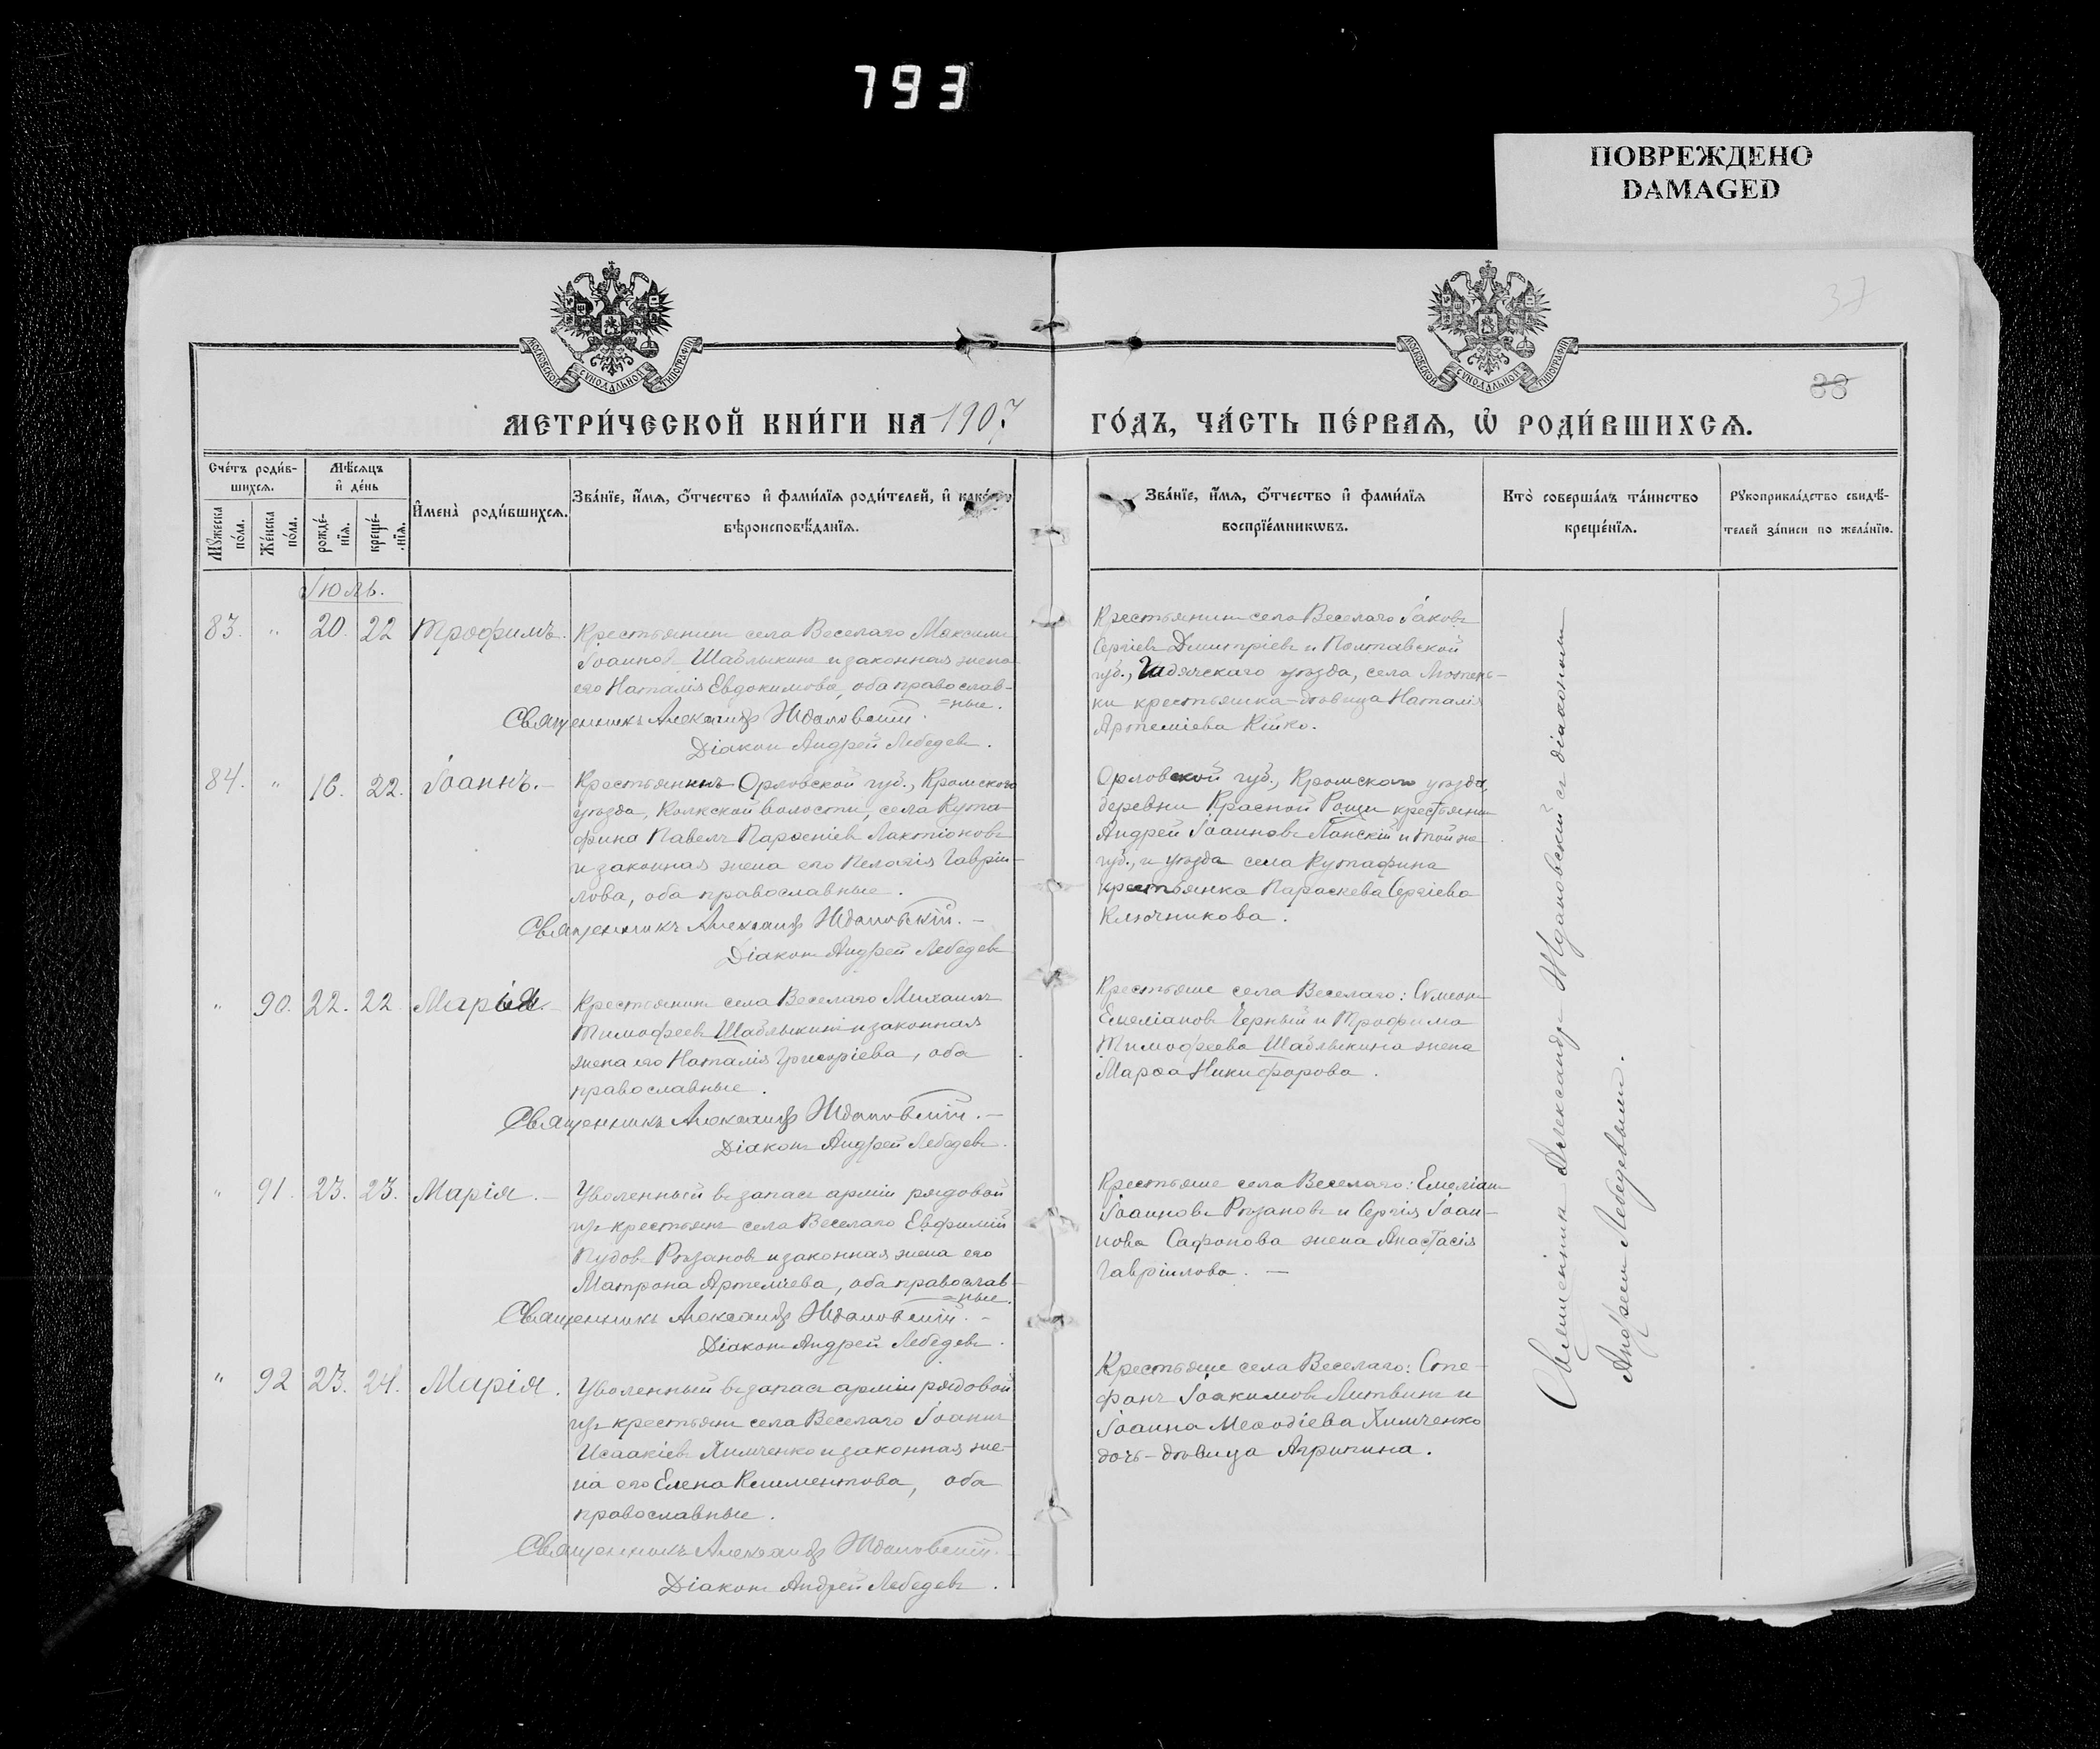 793
ПОВРЕЖДЕНО
DAMAGED
МОСКОВСКОЙ СУНОДАЛЬНОЙ ТИПОГРАФІИ
МОСКОВСКОЙ СУНОДАЛЬНОЙ ТИПОГРАФІИ
37
38
МЕТРИ́ЧЕСКОЙ КНИ́ГИ НА 1907 ГО́ДЪ, ЧА́СТЬ ПЕ́РВАѦ, Ѡ҆ РОДИ́ВШИХСѦ.
Сче́тъ роди́в-
шихсѧ.
Мѣ́сѧцъ
и҆ де́нь
Мꙋ́жеска
по́ла.
Же́нска
по́ла.
рожде́-
нїѧ.
креще́-
нїѧ.
И҆мена̀ роди́вшихсѧ.
Зва́нїе, и҆́мѧ, ѻ҆́тчество и҆ фами́лїѧ роди́телей, и҆ како́гѡ
вѣроисповѣ́данїѧ.
Зва́нїе, и҆́мѧ, ѻ҆́тчество и҆ фами́лїѧ
воспрїе́мникѡвъ.
Кто̀ соверша́лъ та́инство
креще́нїѧ.
Рꙋкоприкла́дство свидѣ́-
телей за́писи по жела́нїю.
Іюль.
83. " 20. 22 Трофимъ.
Крестьянинъ села Веселаго Максимъ
Іоанновъ Шаблыкинъ и законная жена
его Наталія Евдокимова, оба православ-
=ные.
Священникъ Александръ Ждановскій.
Діаконъ Андрей Лебедевъ.
Крестьянинъ села Веселаго Іаковъ
Сергіевъ Димитріевъ и Полтавской
губ., Гадячскаго уѣзда, села Лютень-
ки крестьянка-дѣвица Наталія
Артеміева Кійко.
84. " 16. 22. Іоаннъ.-
Крестьянинъ Орловской губ., Кромскаго
уѣзда, Колкской волости, села Кута-
фина Павелъ Парѳеніевъ Лактіоновъ
и законная жена его Пелагія Гаврі-
лова, оба православные.
Священникъ Александръ Ждановскій.-
Діаконъ Андрей Лебедевъ
Орловской губ., Кромского уѣзда,
деревни Красной Рощи крестьянинъ
Андрей Іоанновъ Ланскій и той же
губ., и уѣзда села Кутафина
крестьянка Параскева Сергіева
Ключникова.
" 90. 22. 22 Марія.-
Крестьянинъ села Веселаго Михаилъ
Тимофеевъ Шаблыкинъ и законная
жена его Наталія Григоріева, оба
православные.
Священникъ Александръ Ждановскій.-
Діаконъ Андрей Лебедевъ.
Крестьяне села Веселаго: Симеонъ
Емеліановъ Черный и Трофима
Тимофеева Шаблыкина жена
Марѳа Никифорова.
" 91. 23. 23. Марія.-
Уволенный въ запасъ арміи рядовой
изъ крестьянъ села Веселаго Евфимій
Пудовъ Рязановъ и законная жена его
Матрона Артеміева, оба православ-
=ные.
Священникъ Александръ Ждановскій.-
Діаконъ Андрей Лебедевъ.
Крестьяне села Веселаго: Емеліанъ
Іоанновъ Рязановъ и Сергія Іоан-
нова Сафонова жена Анастасія
Гавріилова. -
" 92 23. 24. Марія.
Уволенный въ запасъ арміи рядовой
изъ крестьянъ села Веселаго Іоаннъ
Исаакіевъ Химченко и законная же-
на его Елена Климентова, оба
православные.
Священникъ Александръ Ждановскій.
Діаконъ Андрей Лебедевъ.
Крестьяне села Веселаго: Сте-
фанъ Іоакимовъ Литвинъ и
Іоанна Меѳодіева Химченко
дочь-дѣвица Агрипина.
Священникъ Александръ Ждановскій съ діакономъ
Андреемъ Лебедевымъ.